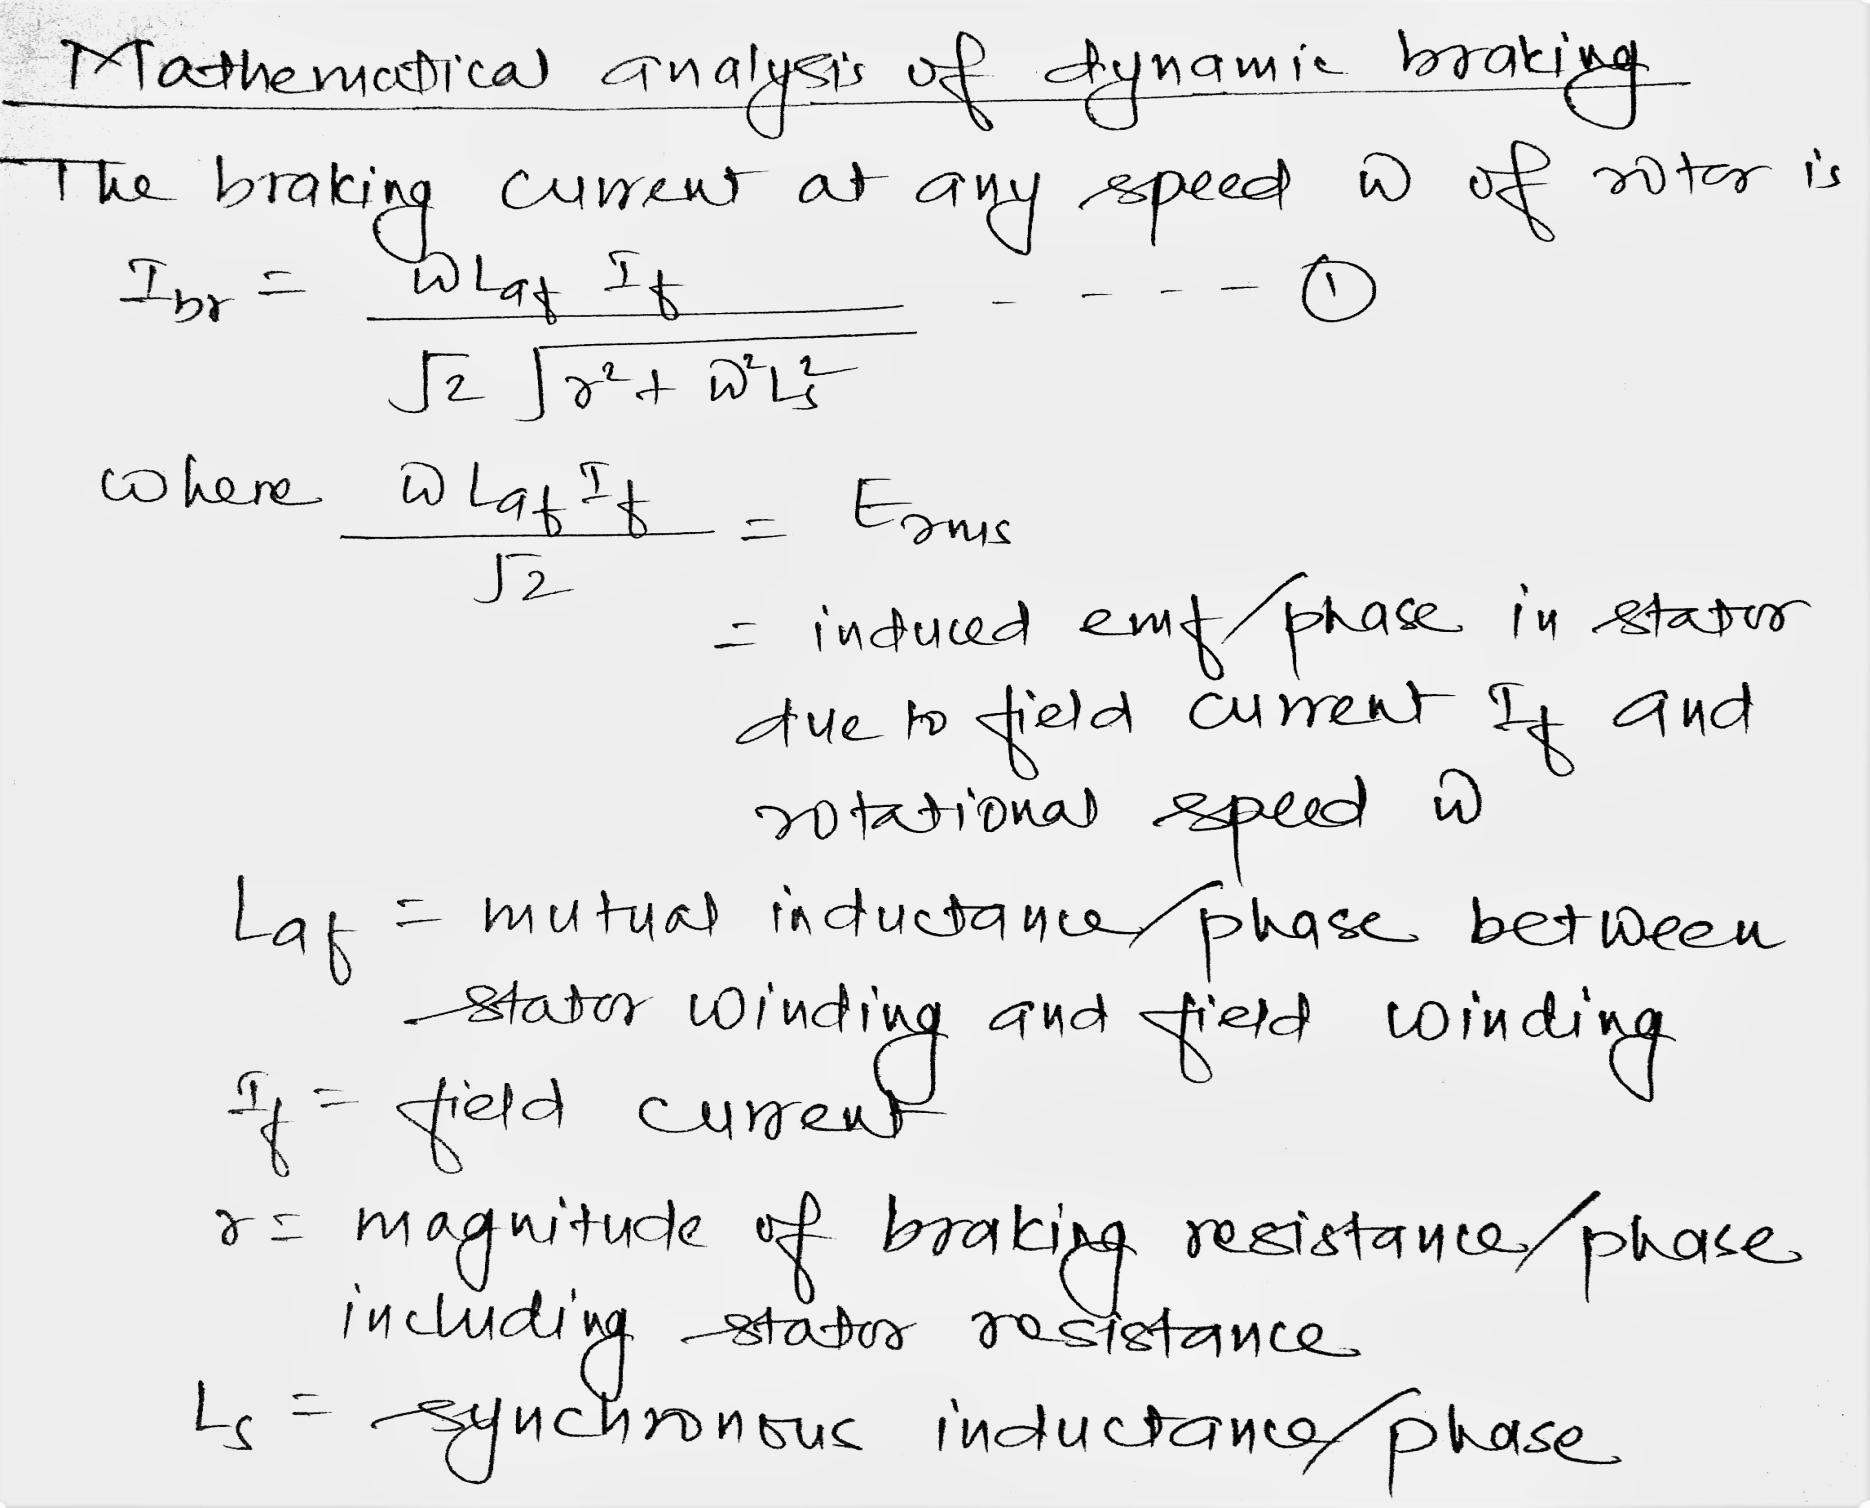 Mathematical analysis of dynamic braking
The braking current at any speed ω of rotor is
I_br = ω L_af I_f / (√2 √(r² + ω² L_s²)) - - - - ①
where ω L_af I_f / √2 = E_rms
= induced emf/phase in stator
due to field current I_f and
rotational speed ω
L_af = mutual inductance/phase between
stator winding and field winding
I_f = field current
r = magnitude of braking resistance/phase
including stator resistance
L_s = synchronous inductance/phase